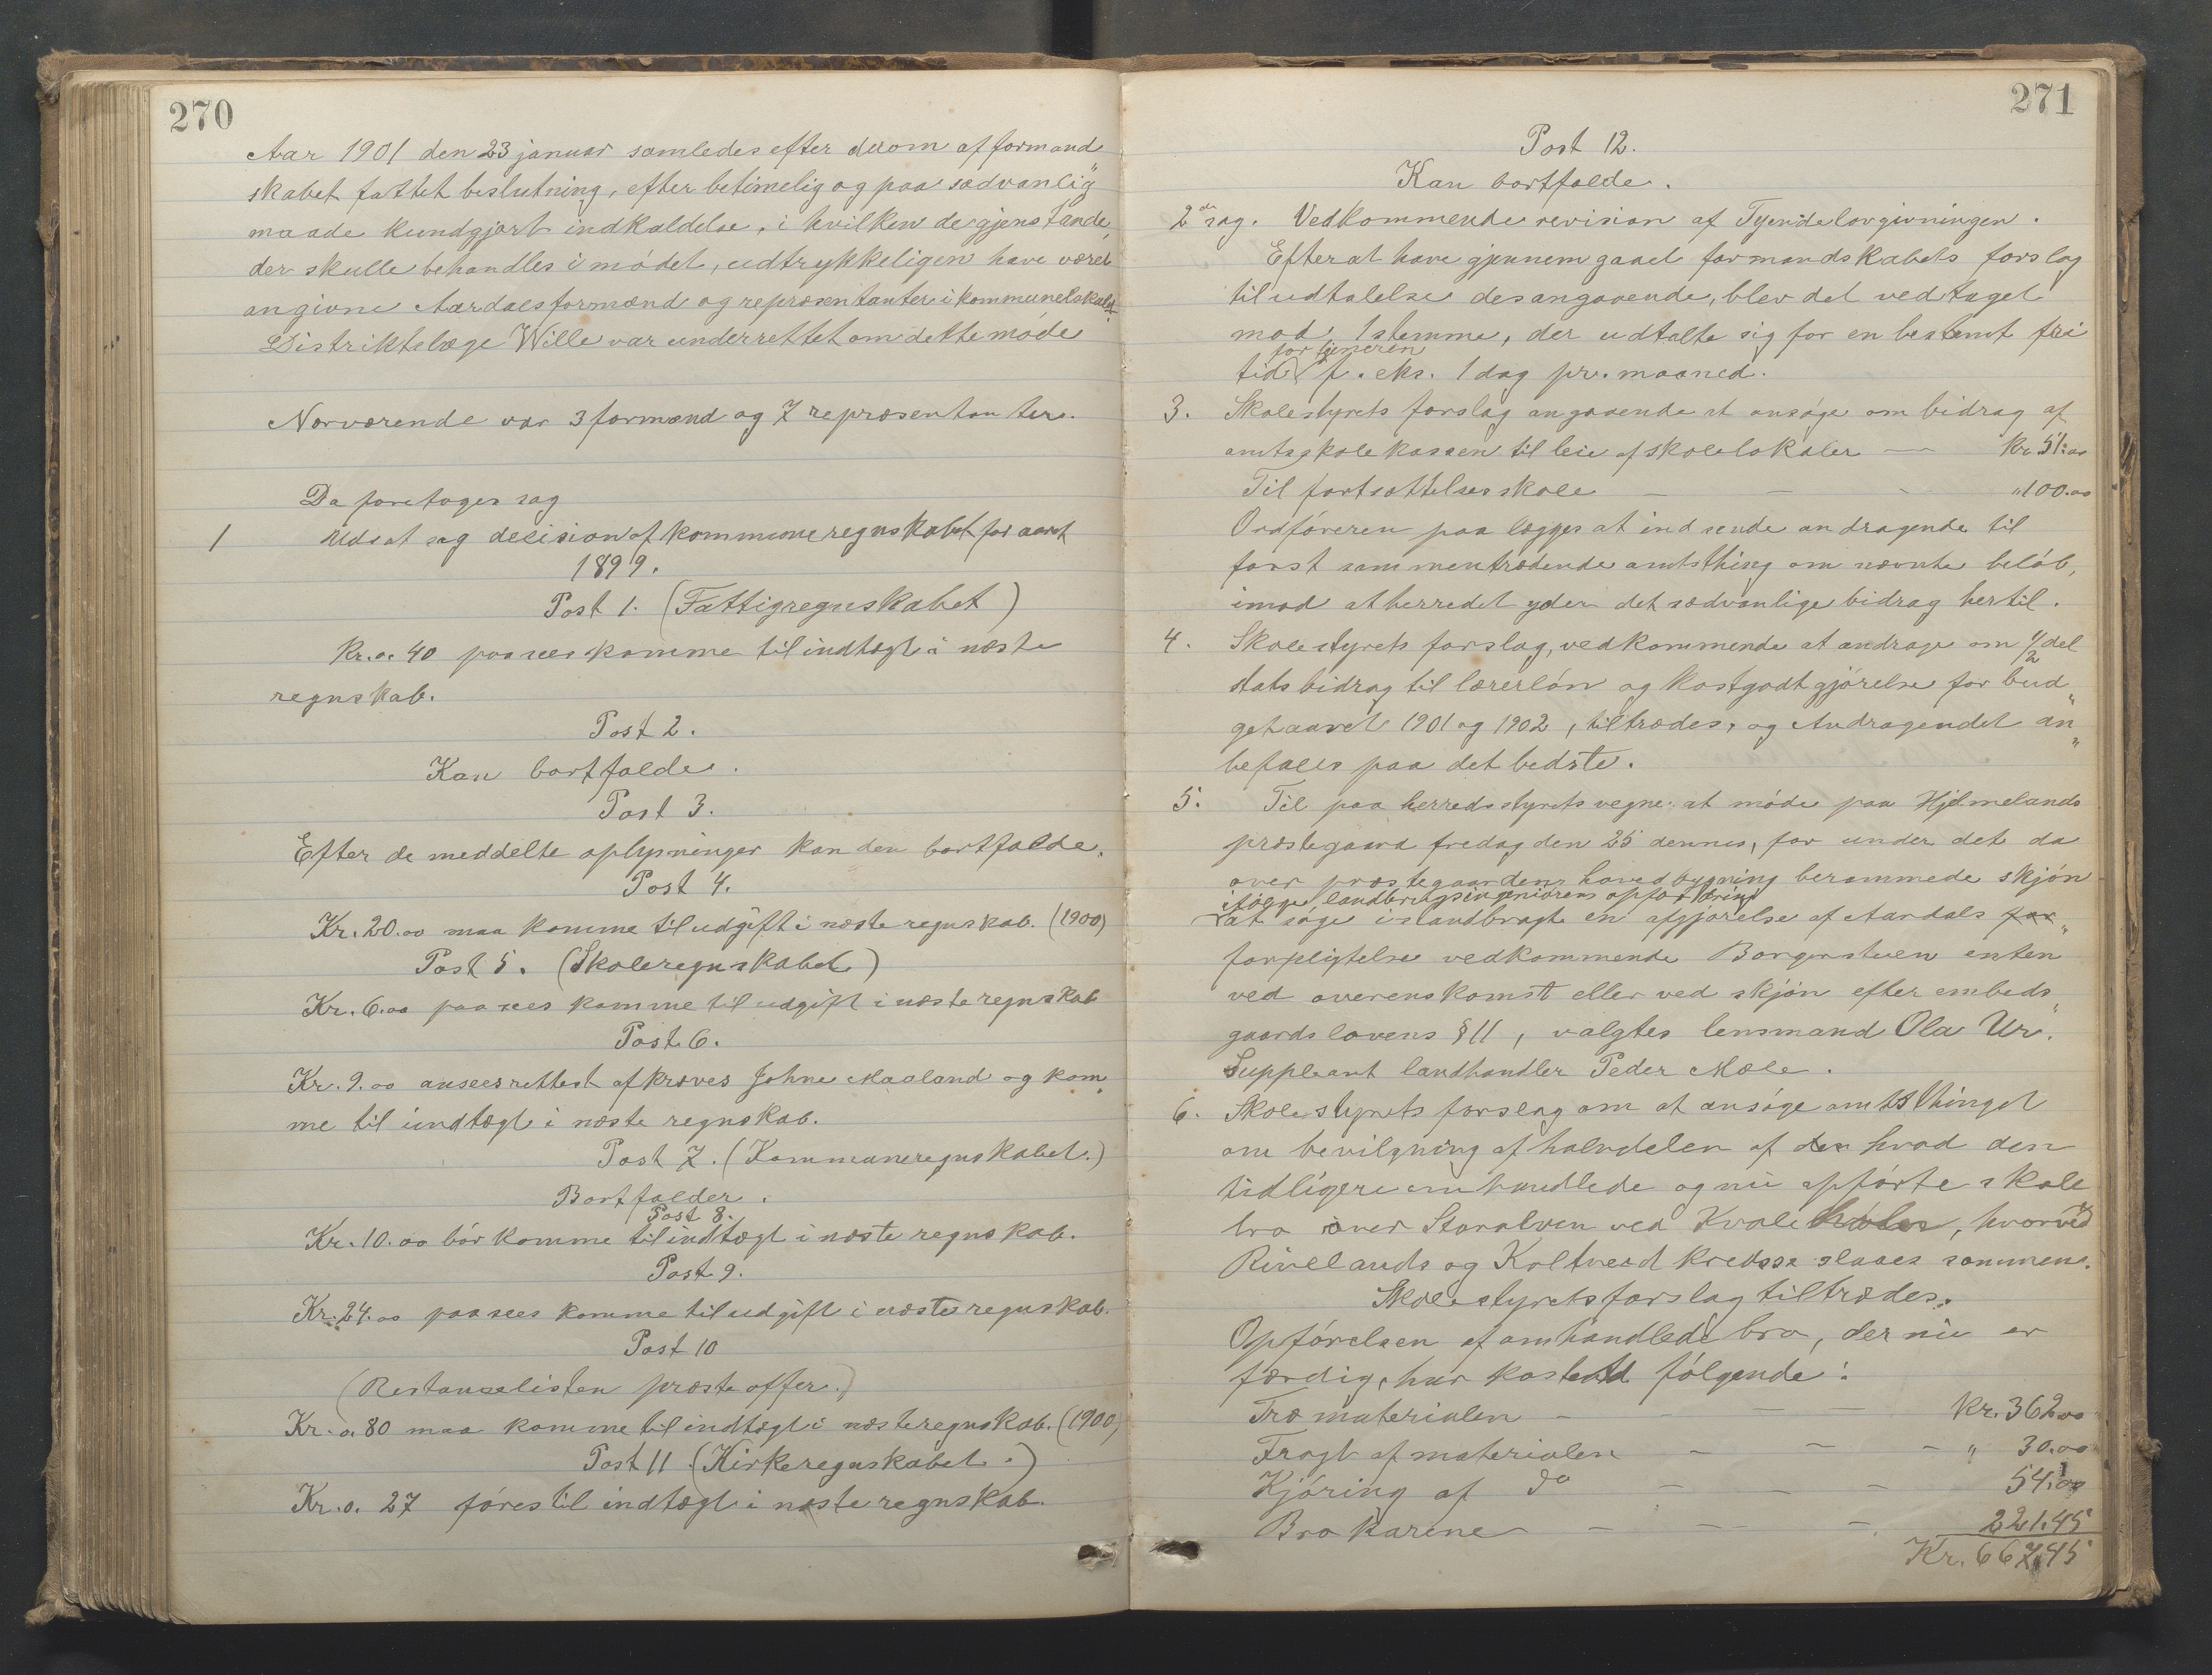 270
Aar 1901 den 23 januar samledes efter derom af formand
skabet fattet beslutning, efter betimelig og paa sædvanlig"
maade kundgjort indkaldelse, i hvilken de gjenstande,
der skulle behandles i mödet, udtrykkeligen have været
angivne Aardals formænd og repræsentanter i kommunelokalet.
Distriktslæge Wille var underrettet om dette möde
Nærværende var 3 formænd og 7 repræsentanter.
Da foretoges sag
1 Udsat sag decision af kommuneregnskabet for aaret
1899.
Post 1. (Fattigregnskabet)
Kr. o. 40 paasees komme til indtægt i næste
regnskab.
Post 2.
Kan bortfalde.
Post 3.
Efter de meddelte oplysninger kan den bortfalde.
Post 4.
Kr. 20.00 maa komme til udgift i næste regnskab. (1900)
Post 5. (Skoleregnskabet)
Kr. 6.00 paasees komme til udgift i næste regnskab
Post 6.
Kr. 9.00 ansees rettest afkræves Johne Maaland og kom„
me til indtægt i næste regnskab.
Post 7. (Kommuneregnskabet.)
Bortfalder.
Post 8.
Kr. 10.00 bör komme til indtægt i næste regnskab.
Post 9.
Kr. 24.00 paasees komme til udgift i næste regnskab.
Post 10
(Restancelisten præsteoffer.)
Kr. o. 80 maa komme til indtægt i næste regnskab. (1900)
Post 11 (Kirkeregnskabet.)
Kr. o. 27 föres til indtægt i næste regnskab.
271
Post 12.
Kan bortfalde.
2de sag. Vedkommende revision af Tyendelovgivningen.
Efter at have gjennemgaaet formandskabets forslag
til udtalelse desangaaende, blev det vedtaget
mod 1 stemme, der udtalte sig for en bestemt fri
for tjeneren
tid f. eks. 1 dag pr. maaned.
3. Skolestyrets forslag angaaende at ansöge om bidrag af
amtsskolekassen til leie af skolelokaler — Kr. 51.00
Til fortsættelsesskole — — - " 100.00
Ordföreren paalægges at indsende andragende til
först sammentrædende amtsthing om nævnte belöb,
imod at herredet yder det sædvanlige bidrag hertil.
4. Skolestyrets forslag, vedkommende at andrage om 1/2 del
statsbidrag til lærerlön og kostgodtgjörelse for bud„
getaaret 1901 og 1902, tiltrædes, og Andragendet an„
befales paa det bedste.
5. Til paa herredsstyrets vegne at möde paa Hjelmelands
præstegaard fredag den 25 dennes, for under det da
over præstegaardens hovedbygning berammede skjön
ifölge landbrugsingeniörens opfordring
at söge istandbragt en afgjörelse af Aardals for„
forpligtelse vedkommende Borgerstuen enten
ved overenskomst eller ved skjön efter embeds„
gaardslovens § 11, valgtes lensmand Ola Ur.
Suppleant landhandler Peder Mæle.
6. Skolestyrets forslag om at ansöge amtsthinget
om bevilgning af halvdelen af den hvad den
tidligere omhandlede og nu opförte skole„
bro over Storelven ved Kvale, hvorved
Rivelands og Koltveed kredse slaaes sammen.
Skolestyrets forslag tiltrædes.
Opförelsen af omhandlede bro, der nu er
færdig, har kostet fölgende:
Træmaterialen - — — — Kr. 362.00
Fragt af materialen — — - " 30.00
Kjöring af do — — — 54.00
Brokarene — — — 221.45
Kr. 667.45